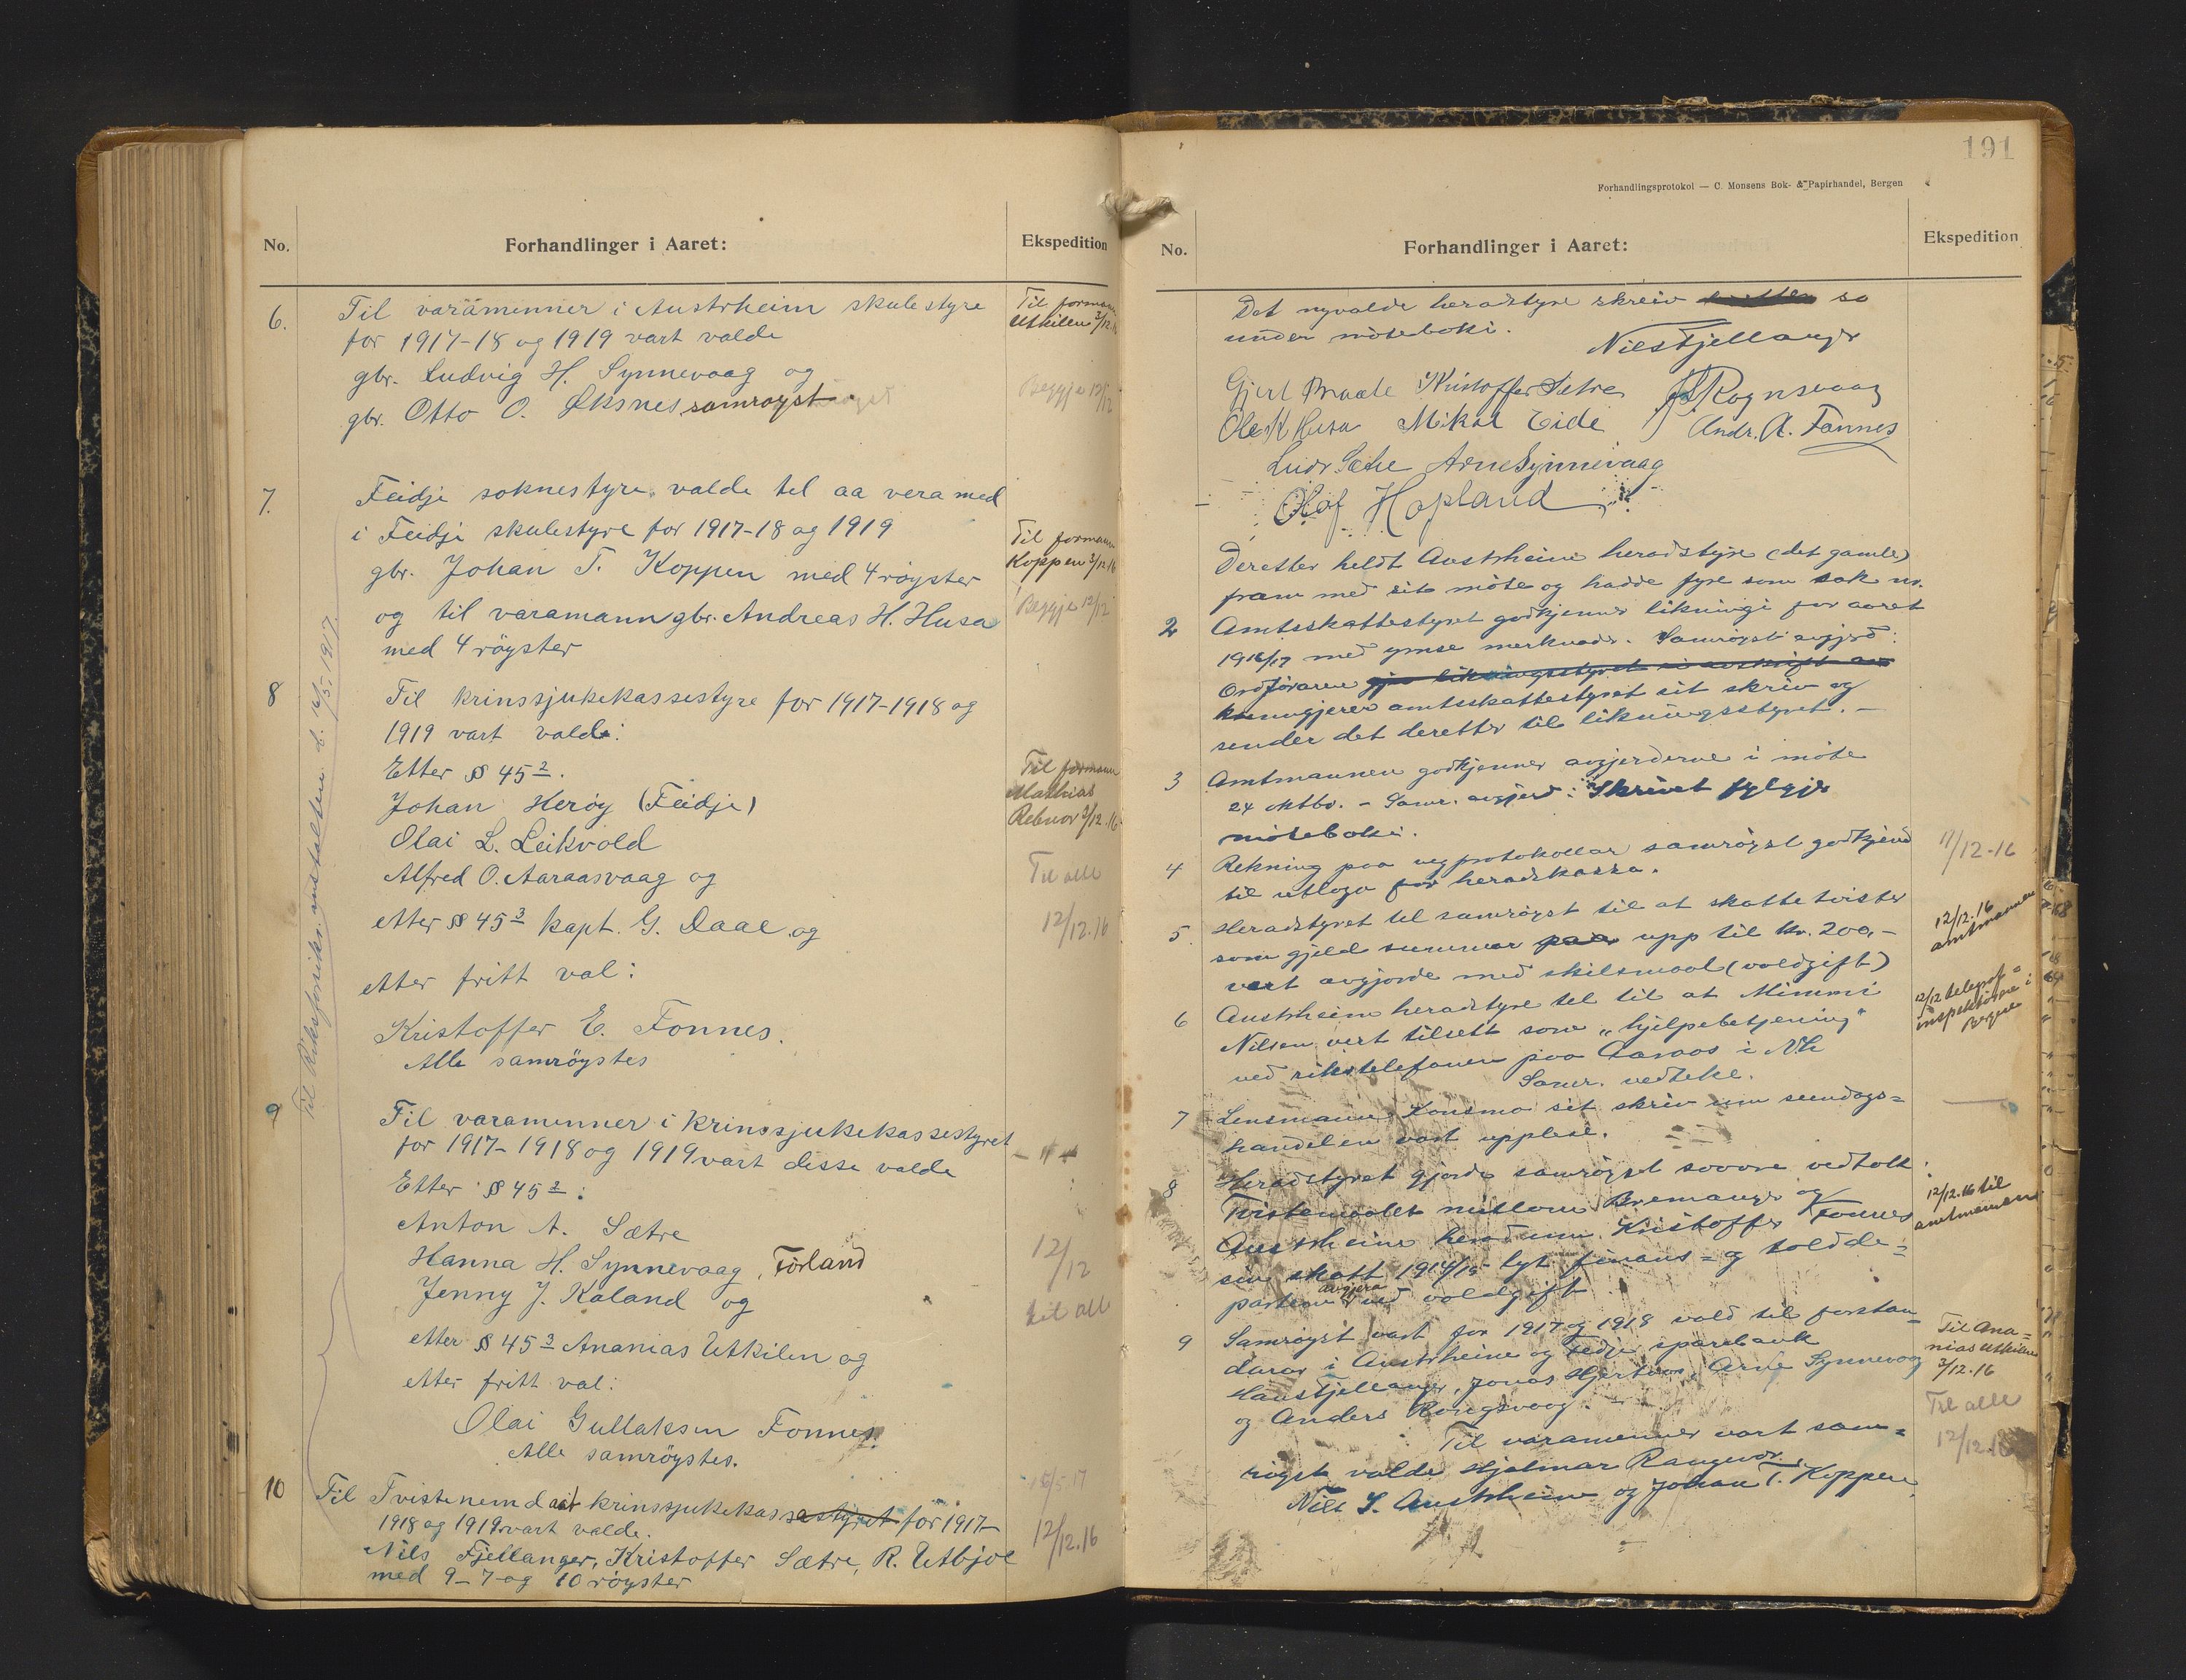 No.
Forhandlinger i Aaret:
Ekspedition
6.
Til varämenner i Austrheim skulestyre
for 1917-18 og 1919 vart valde
gbr. Ludvig H. Synnevaag og
gbr. Otto O. Øksnes samrøyst.
Til formann
Utkilen 3/12.16
Beggje 12/12
7.
Feidje soknestyre valde tel aa vera med
i Feidje skulestyre for 1917-18 og 1919
gbr. Johan T. Koppen med 4 røyster
og til varamann gbr. Andreas H. Husa
med 4 røyster
Til formann
Koppen 3/12 16
Beggje 12/12
8
Til krinssjukekassestyre for 1917-1918 og
1919 vart valde:
Etter § 45 2.
Johan Herøy (Feidje)
Olai L. Leikvold
Alfred O. Aaraasvaag og
etter § 45 3 kapt. G. Daae og
etter fritt val:
Kristoffer E. Fonnes.
Alle samrøystes
Til formann
Mathias
Rebnor 3/12.16
Til alle
12/12.16
Til Riksforsikr. anstalten d. 16/5.1917.
9
Til varamenner i krinssjukekassestyret
for 1917-1918 og 1919 vart disse valde
Etter § 45 2:
Anton A. Sætre
Hanna H. Synnevaag, Førland
Jenny J. Kaland og
etter § 45 3 Ananias Utkilen og
etter fritt val:
Olai Gullaksen Fonnes.
Alle samrøystes.
- " -
12/12
til all
10
Til Tvistenemd ved krinssjukekassestyret for 1917-
1918 og 1919 vart valde.
Nils Fjellanger, Kristoffer Sætre, R. Utbjoe
med 9-7 og 10 røyster
16/5.17
12/12.16
191
Forhandlingsprotokol — C. Monsens Bok- & Papirhandel, Bergen
No.
Forhandlinger i Aaret:
Ekspedition
Det nyvalde heradstyre skreiv so
under møteboki.
Nils Fjellanger
Gjert Braate Kristoffer Sætre Rognsvaag
Ole K Husa Mikal Eide Andr. A. Fonnes
Ludv. Sætre Arne Synnevaag
Olaf Hopland
Deretter heldt Austrheim heradstyre (det gamle)
fram med sit møte og hadde fyre som sak nr.
2
Amtsskattestyret godkjenner likningi for aaret
1916/17 med ymse merknadr. Samrøyst avgjerd:
Ordføraren gjev likningsstyret ei avskrift av
kunngjerer amtsskattestyret sit skriv og
sender det deretter til likningsstyret. -
3
Amtmannen godkjenner avgjerderne i møte
24 oktbr. - Samr. avgjerd: Skrivet fylgje
møteboki.
4
Rekning paa vegprotokollar samrøyst godkjend
til utloga for heradskassa.
11/12-16
5
Heradstyret tel samrøyst til at skattetvister
som gjeld summar paa upp til kr. 200,-
vert avgjorde med skilsmaal (voldgift)
12/12.16
amtmannen
6
Austrheim heradstyre tel til at Mimmi
Nilsen vert tilsett som "hjelpebetjening"
ved rikstelefonen paa Aaraas i N.h
Samr. vedteke.
12/12 telegraf=
inspektøren i
Bergen
7
Lensmann Konsmo sit skriv um sundags=
handelen vart upplese.
8
Heradstyret gjorde samrøyst sovore vedtak:
Tvistemaalet millom Bremanger og
Austrheim herad um Kristoffer Fonnes
sin skatt 1914/15 lyt finans= og tolldepartem.
avgjera ved voldgift
12/12.16 til
amtmannen
9
Samrøyst vart for 1917 og 1918 vald til forstan=
darar i Austrheim og Fedje sparebank
Hans Fjellanger, Jonas Hjertaas, Arne Synnevaag
og Anders Rongevaag.
Til varamenner vart sam=
røyst valde Hjalmar Rangenor
Nils S. Austrheim og Johan T. Koppen.
Til Ana=
nias Utkilen
3/12.16
Til alle
12/12.16